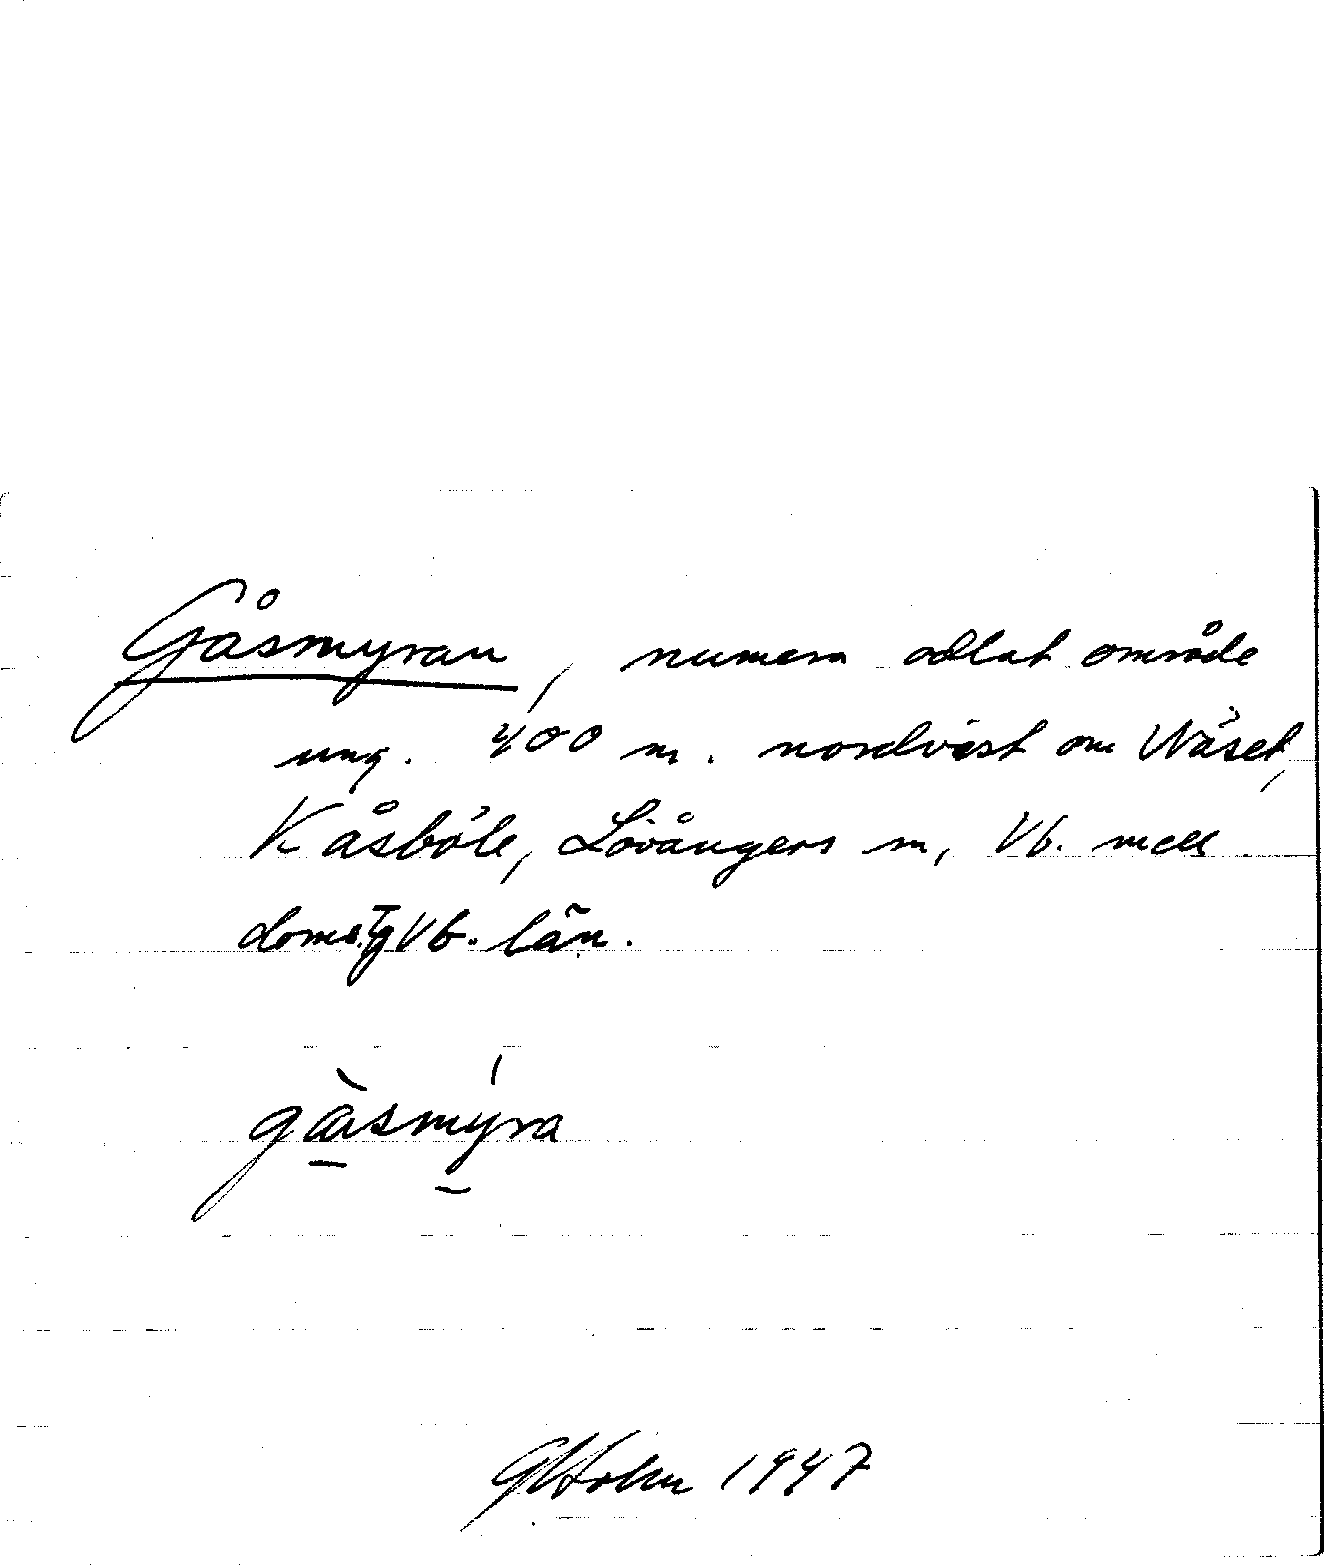 Gåsmyran, numera odlat område
ung. 400 m. nordväst om Näset,
Kåsböle, Lövångers sn, Vb. mell
doms. Vb. län.
gåsmýra
GHolm 1947